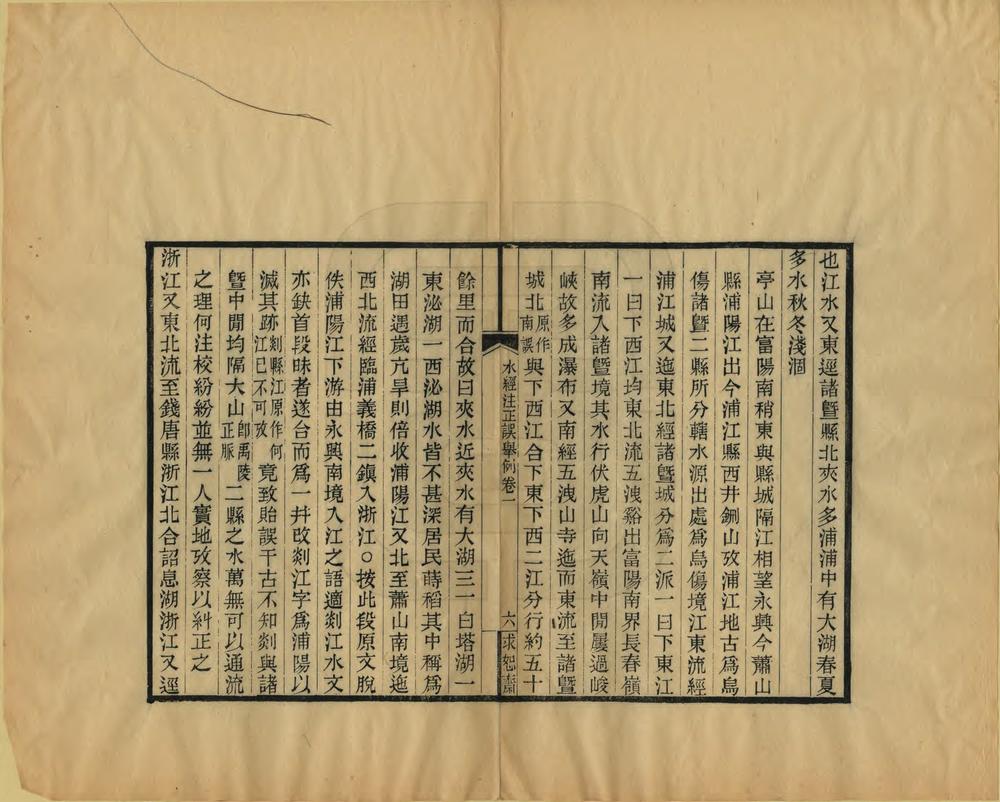 也江水又東逕諸曁縣北夾水多浦浦中有大湖春夏
多水秋冬淺涸
亭山在富陽南稍東與縣城隔江相望永興今蕭山
縣浦陽江出今浦江縣西井鉶山攷浦江地古爲烏
傷諸曁二縣所分轄水源出處爲烏傷境江東流經
浦江城又迤東北經諸曁城分爲二派一曰下東江
一曰下西江均東北流五洩谿出富陽南界長春嶺
南流入諸曁境其水行伏虎山向天嶺中閒屢過峻
峽故多成瀑布又南經五洩山寺迤而東流至諸曁
城北原作南誤與下西江合下東下西二江分行約五十
水經注正誤舉例卷一
六
求恕齋
餘里而合故曰夾水近夾水有大湖三一白塔湖一
東泌湖一西泌湖水皆不甚深居民蒔稻其中稱爲
湖田遇歲亢旱則倍收浦陽江又北至蕭山南境迤
西北流經臨浦義橋二鎭入浙江○按此段原文脫
佚浦陽江下游由永興南境入江之語適剡江水文
亦缺首段昧者遂合而爲一幷改剡江字爲浦陽以
滅其跡剡縣江原作何江已不可攷竟致貽誤千古不知剡與諸
曁中閒均隔大山卽禹陵正脈二縣之水萬無可以通流
之理何注校紛紛並無一人實地攷察以糾正之
浙江又東北流至錢唐縣浙江北合詔息湖浙江又逕